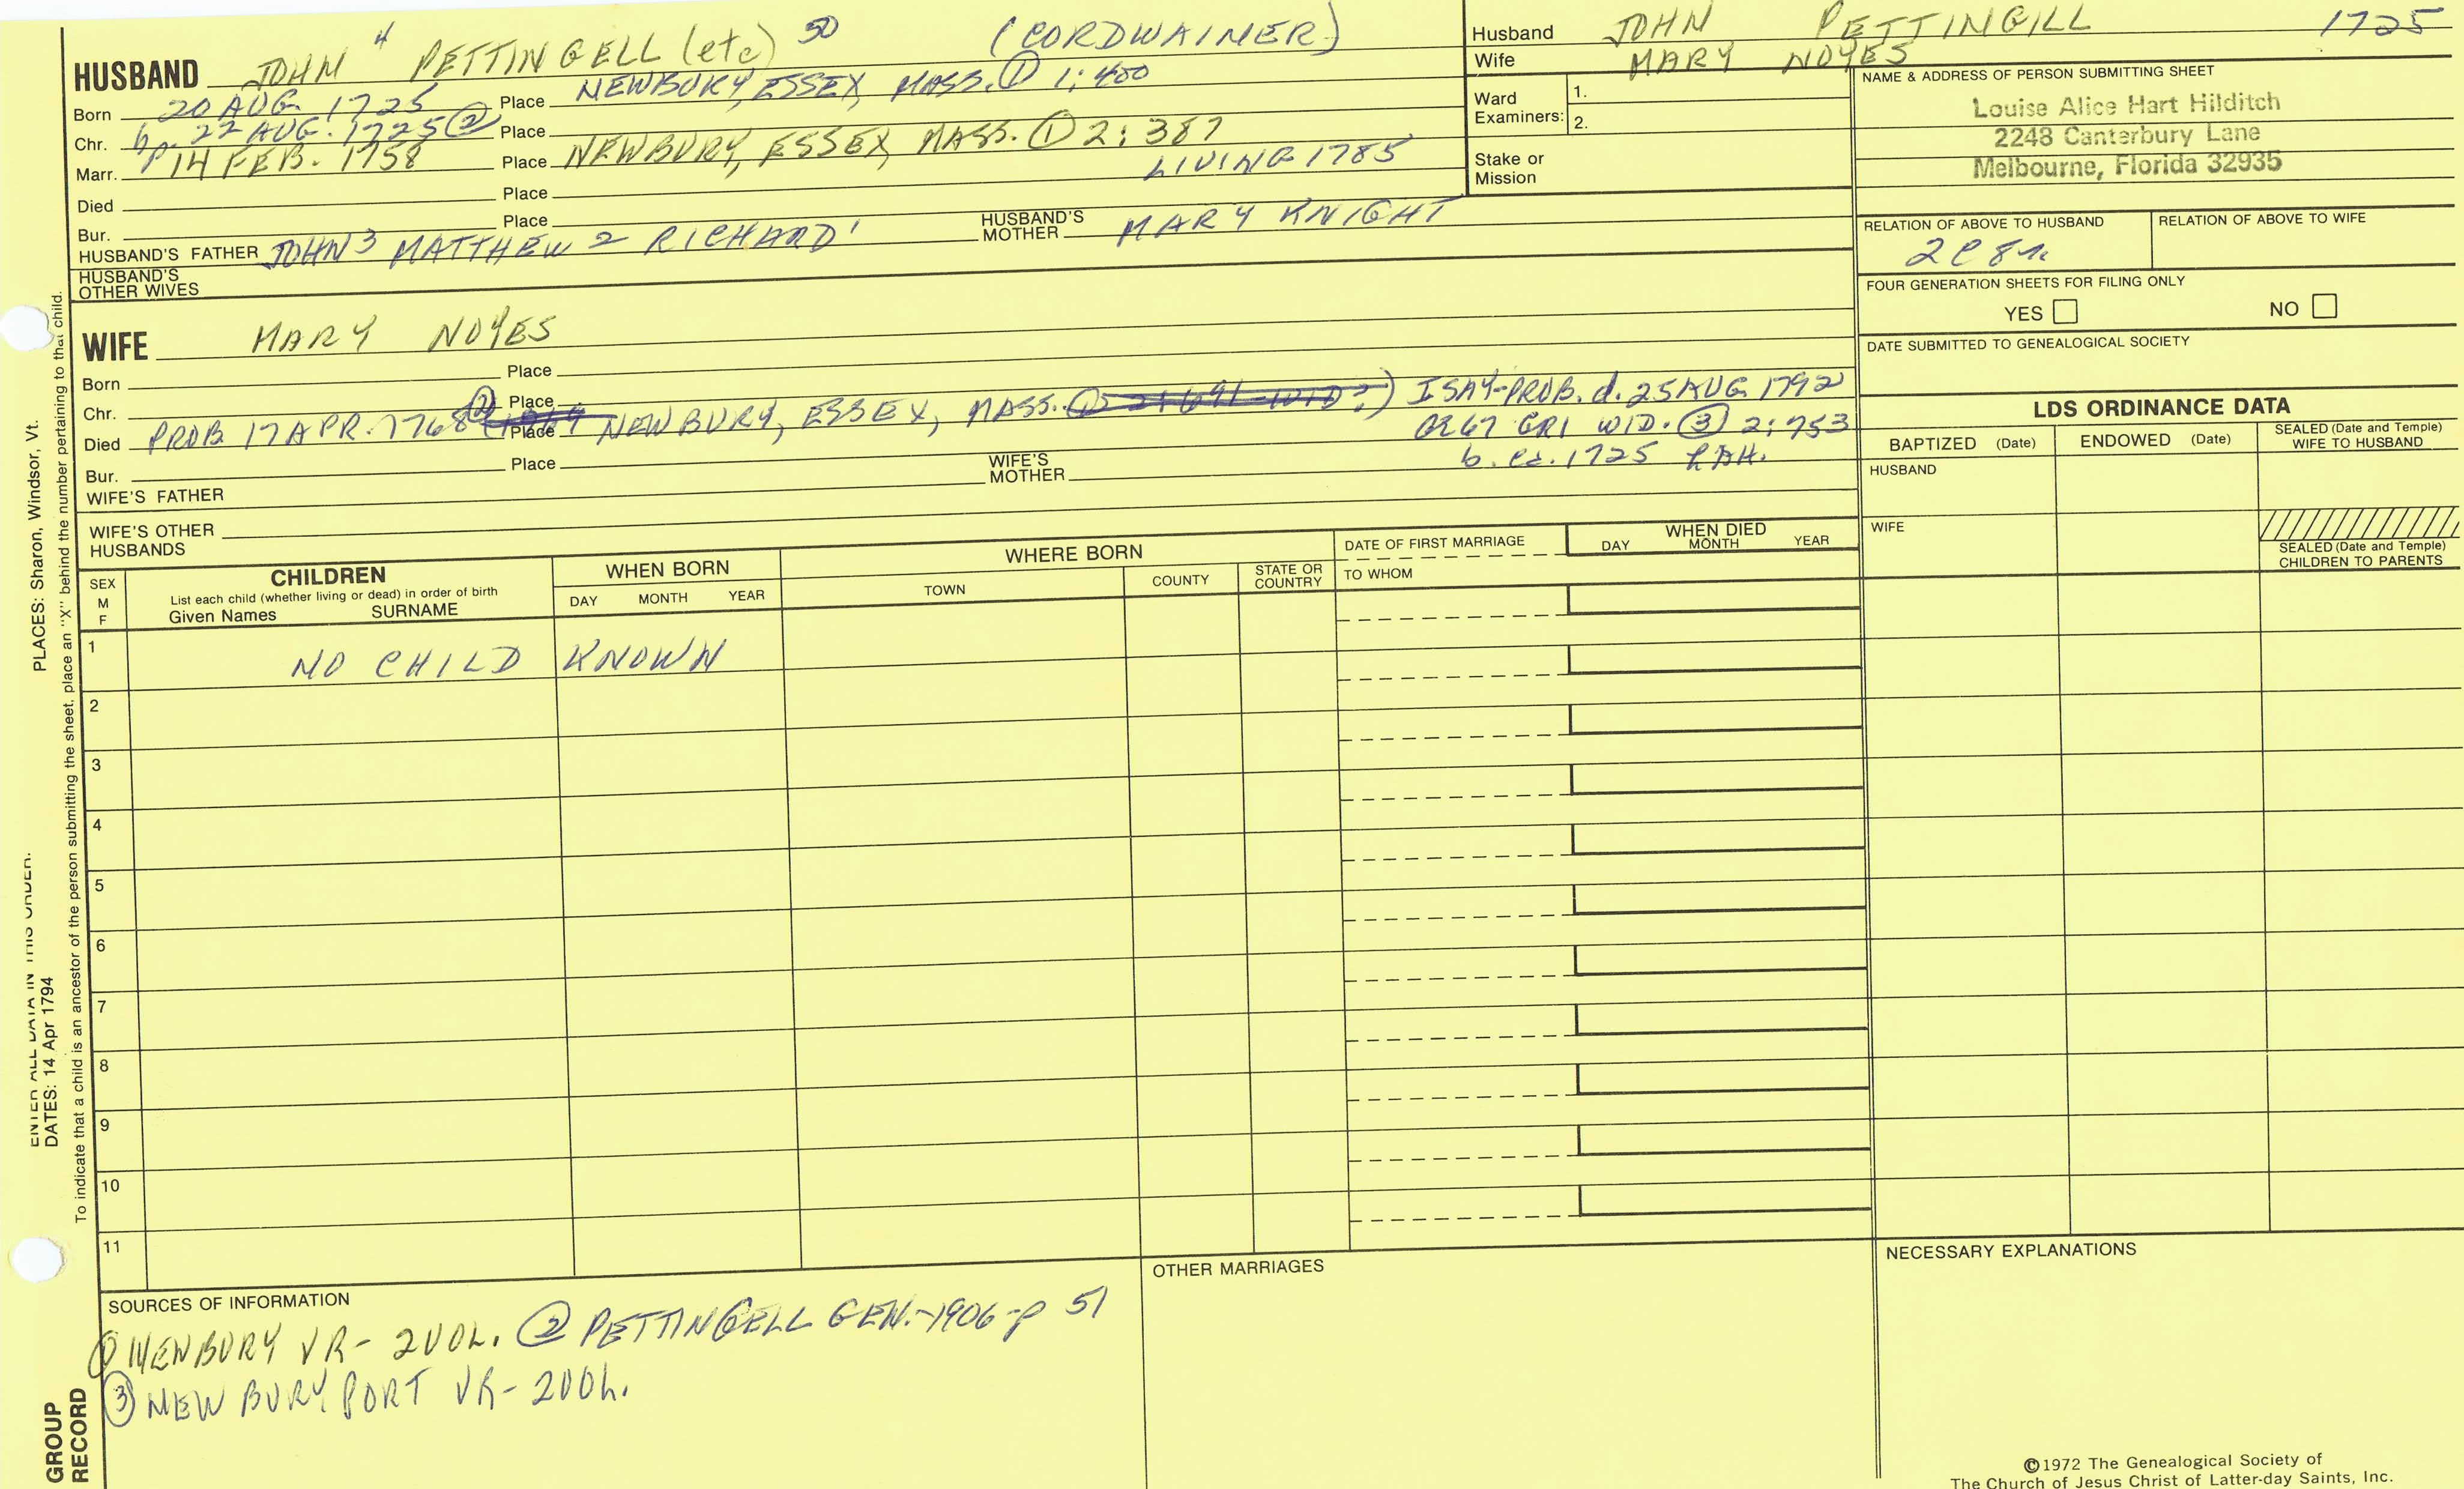 HUSBAND JOHN 4 PETTINGELL (etc) 50 (CORDWAINER)
Born 20 AUG. 1725 Place NEWBURY, ESSEX, MASS. ① 1:400
Chr. bp. 22 AUG. 1725 ② Place
Marr. 14 FEB. 1758 Place NEWBURY, ESSEX, MASS. ① 2:387
Died Place LIVING 1785
Bur. Place
HUSBAND'S FATHER JOHN 3 MATTHEW 2 RICHARD 1 HUSBAND'S MOTHER MARY KNIGHT
HUSBAND'S
OTHER WIVES
Husband JOHN PETTINGILL 1725
Wife MARY NOYES
Ward Examiners: 1.
2.
Stake or
Mission
NAME & ADDRESS OF PERSON SUBMITTING SHEET
Louise Alice Hart Hilditch
2248 Canterbury Lane
Melbourne, Florida 32935
RELATION OF ABOVE TO HUSBAND RELATION OF ABOVE TO WIFE
2C8r
FOUR GENERATION SHEETS FOR FILING ONLY
YES NO
DATE SUBMITTED TO GENEALOGICAL SOCIETY
WIFE MARY NOYES
Born Place
Chr. Place
Died PROB. 17 APR. 1768 ② Place NEWBURY, ESSEX, MASS. I SAY-PROB. d. 25 AUG 1792
AE 67 GR1 WID. ③ 2:753
b. ca. 1725 LAH.
Bur. Place
WIFE'S FATHER WIFE'S MOTHER
WIFE'S OTHER
HUSBANDS
LDS ORDINANCE DATA
BAPTIZED (Date) ENDOWED (Date) SEALED (Date and Temple)
WIFE TO HUSBAND
HUSBAND
WIFE
SEALED (Date and Temple)
CHILDREN TO PARENTS
SEX
M
F
CHILDREN
List each child (whether living or dead) in order of birth
Given Names SURNAME
WHEN BORN
DAY MONTH YEAR
WHERE BORN
TOWN COUNTY STATE OR COUNTRY
DATE OF FIRST MARRIAGE
TO WHOM
WHEN DIED
DAY MONTH YEAR
1 NO CHILD KNOWN
2
3
4
5
6
7
8
9
10
11
SOURCES OF INFORMATION
① NEWBURY VR- 2VOL. ② PETTINGELL GEN.-1906-p 51
③ NEWBURYPORT VR- 2VOL.
OTHER MARRIAGES
NECESSARY EXPLANATIONS
©1972 The Genealogical Society of
The Church of Jesus Christ of Latter-day Saints, Inc.
ENTER ALL DATA IN THIS ORDER:
DATES: 14 Apr 1794 PLACES: Sharon, Windsor, Vt.
To indicate that a child is an ancestor of the person submitting the sheet, place an "X" behind the number pertaining to that child.
GROUP
RECORD